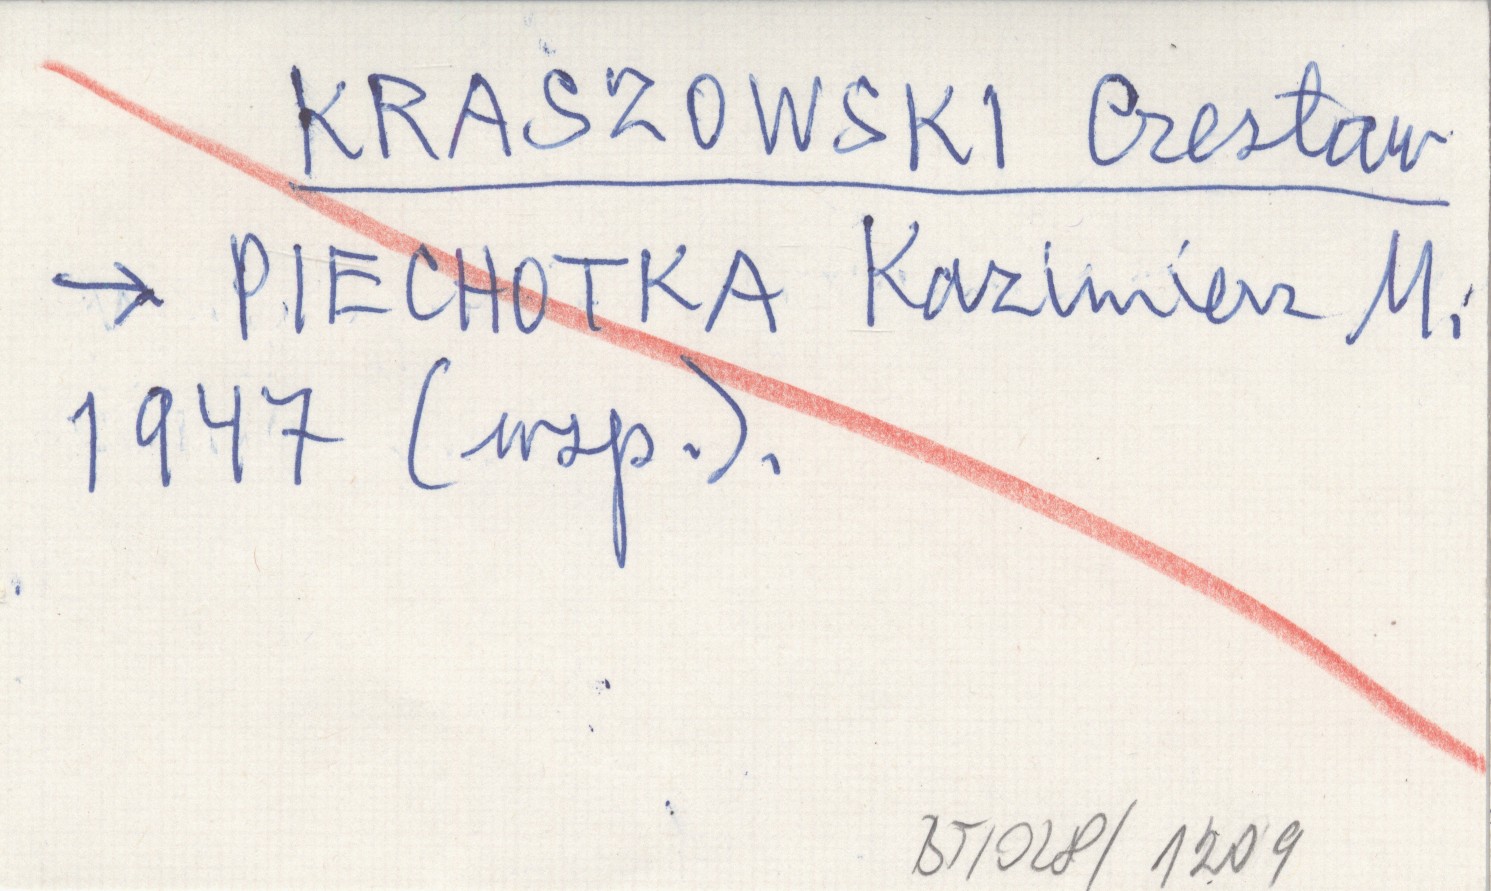 KRASZOWSKI Czesław
→ PIECHOTKA Kazimierz M.
1947 (wsp.).
BT/028/1209